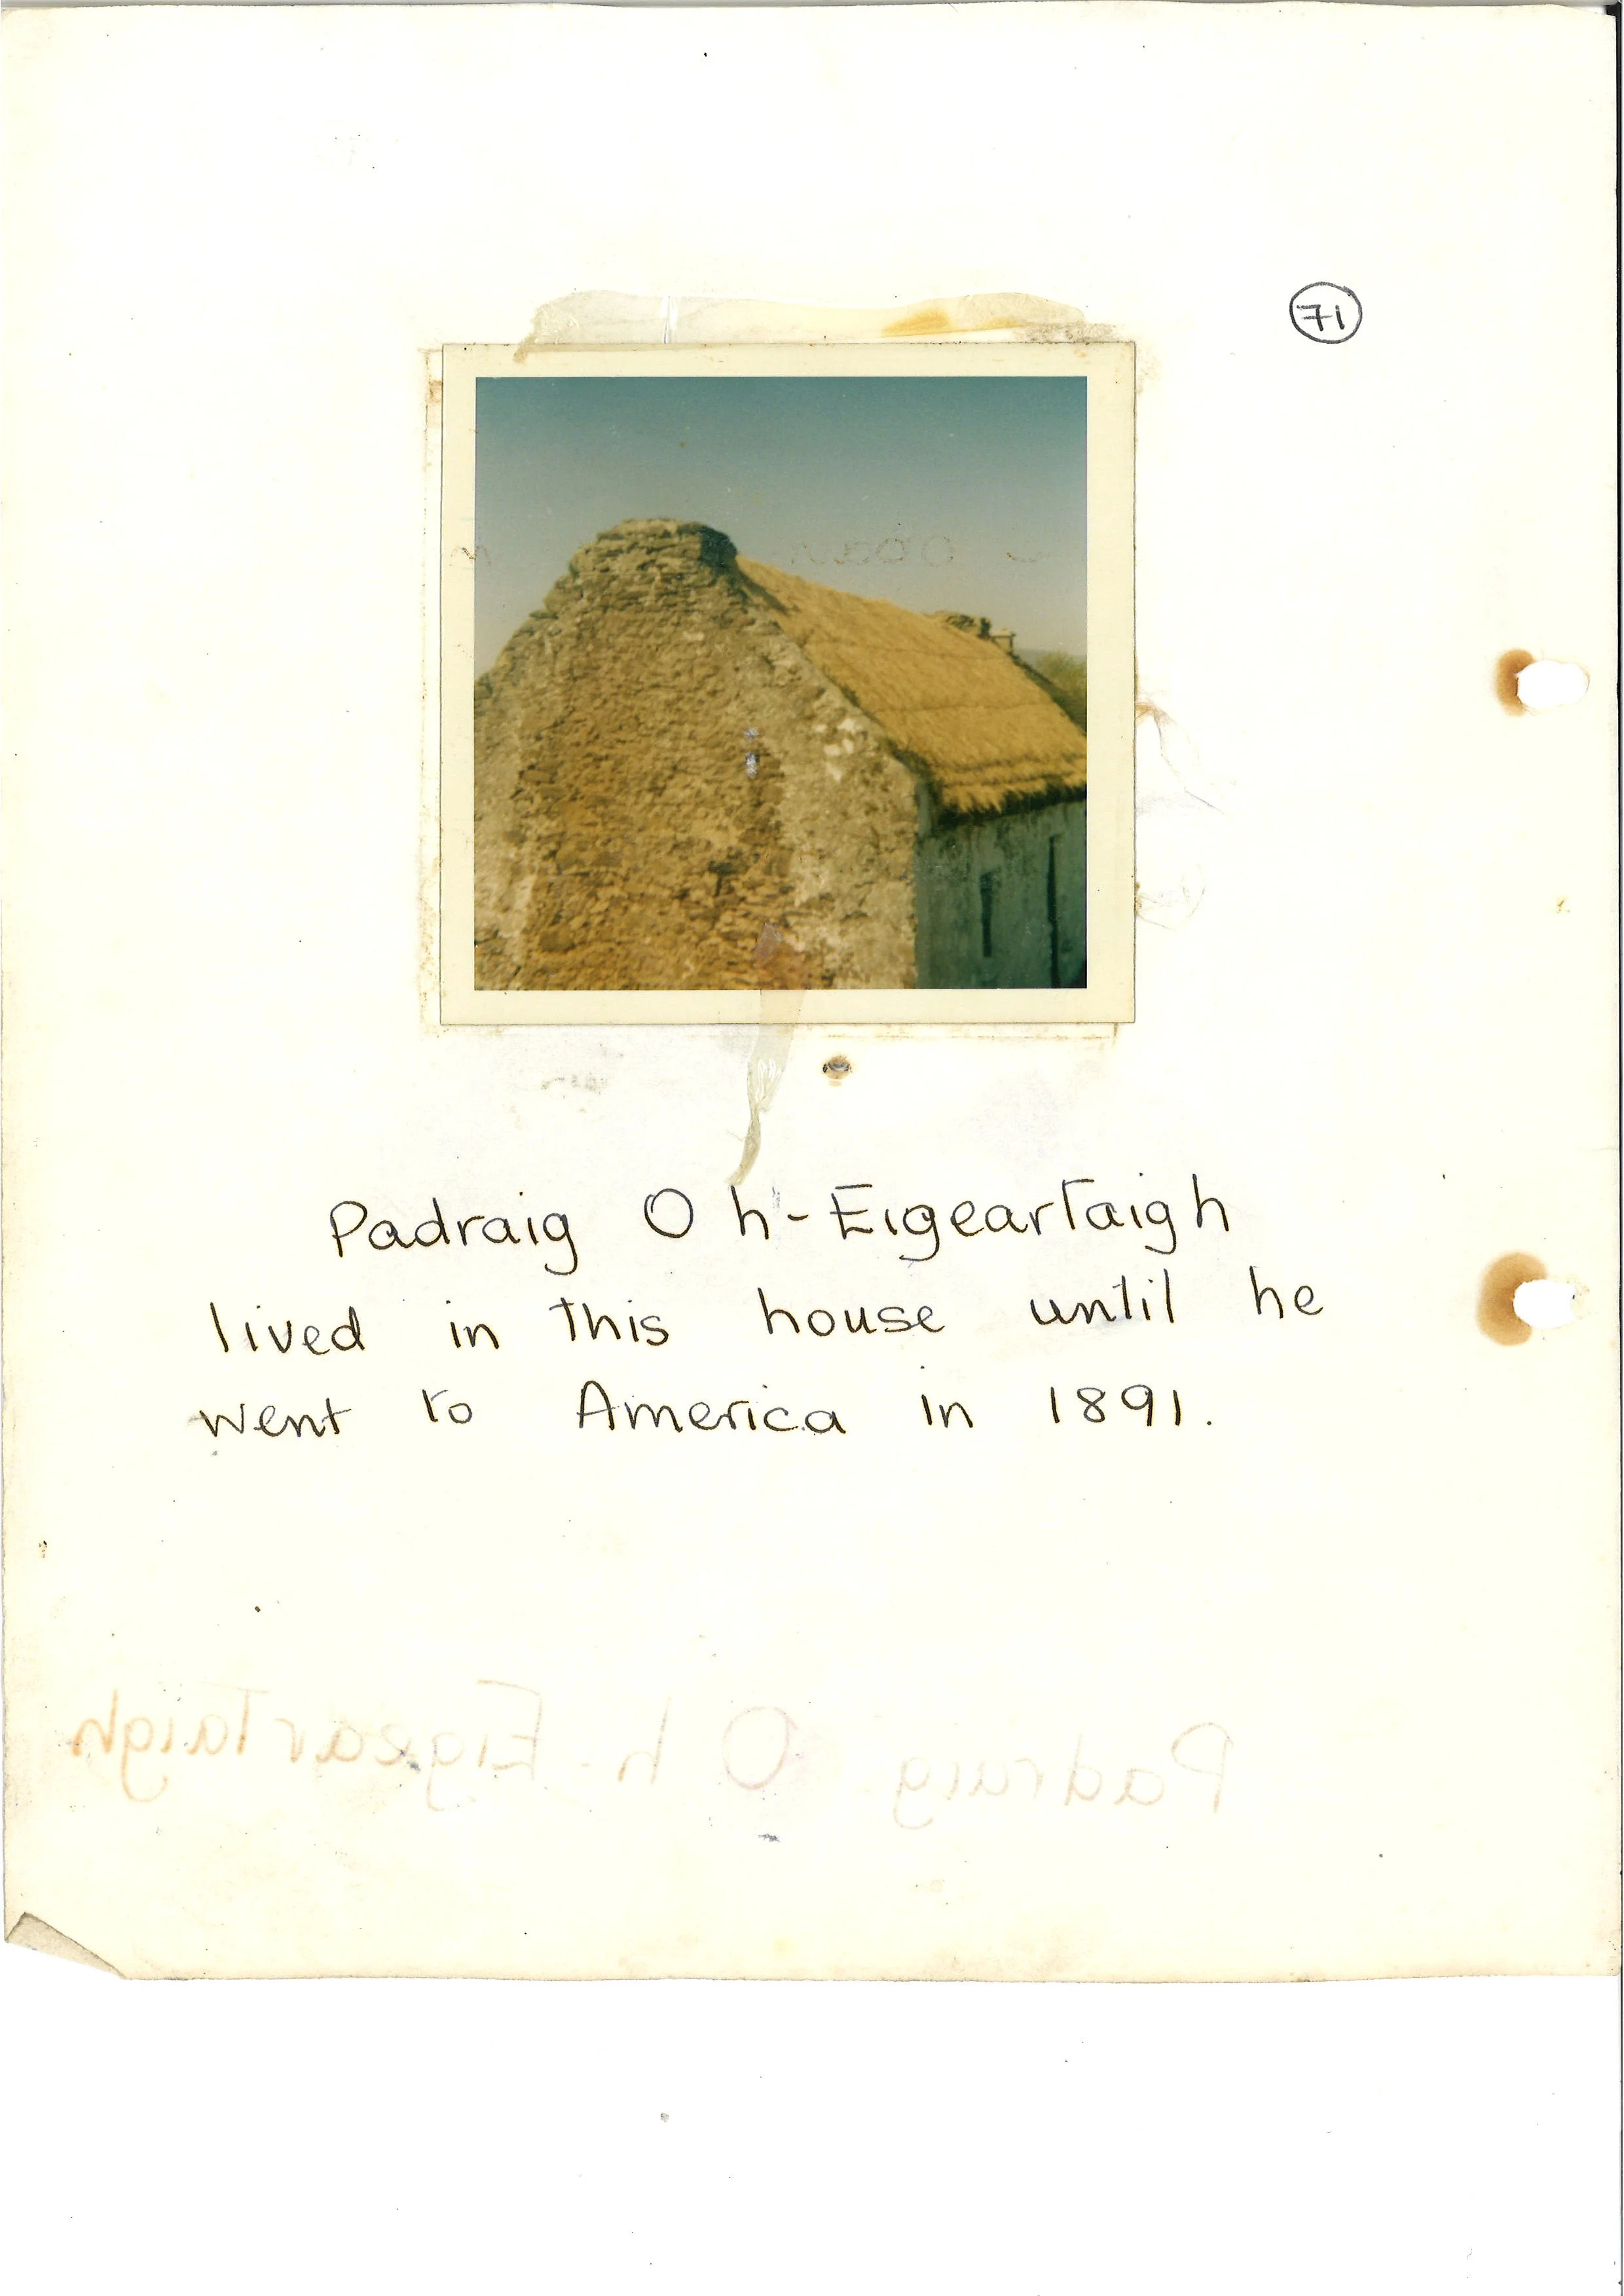 71
Padraig O h-Eigeartaigh
lived in this house until he
went to America in 1891.
Padraig O h-Eigeartaigh